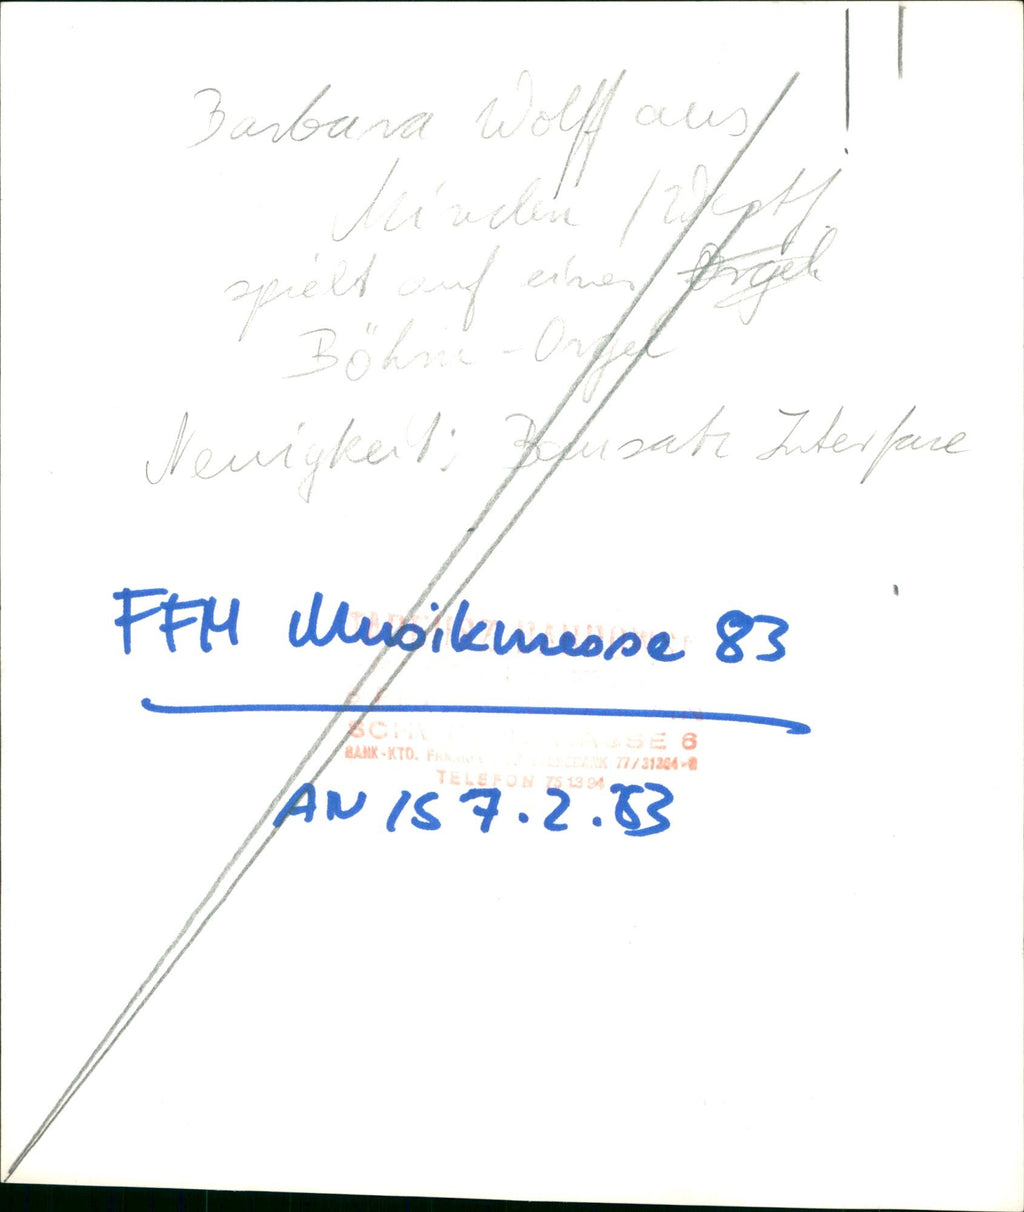 Barbara Wolff aus
Minden / Westf.
spielt auf einer Orgel
Böhm - Orgel
Neuigkeit; Bausatz Interface
FFM Musikmesse 83
SE 6
BANK-KTO. 77/31364
TELEFON 75 13 94
AN 15 7.2.83